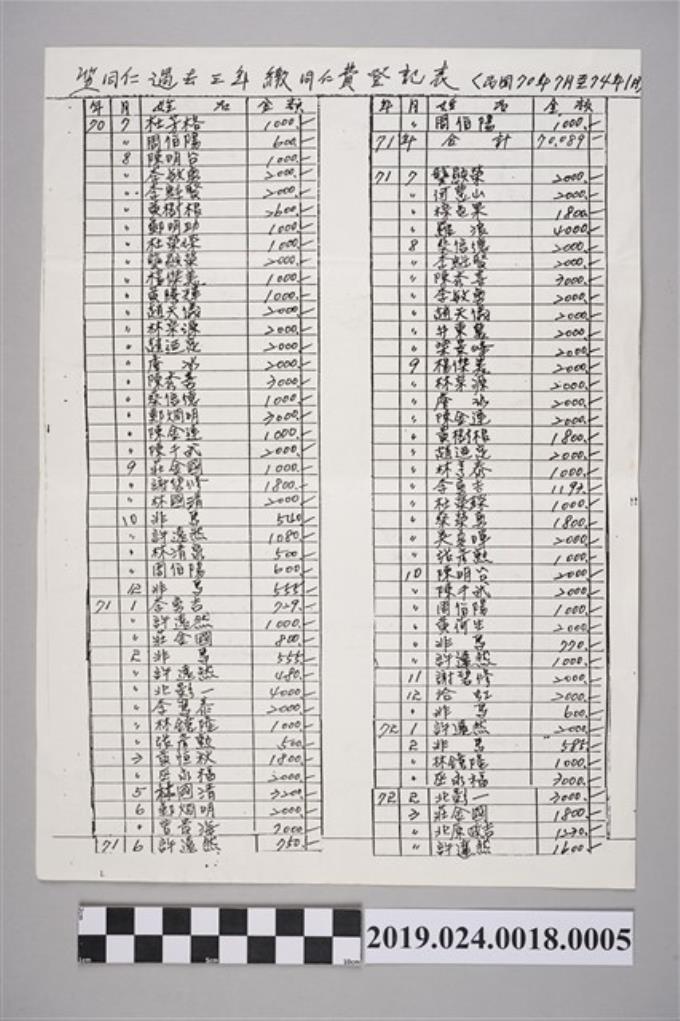 笠同仁過去三年繳同仁費登記表(民國70年7月至74年1月)
年 月 姓 名 金額
70 7 杜芳格 1000.-
〃 周伯陽 600.-
8 陳明台 1000.-
〃 李敏勇 2000.-
〃 李魁賢 2000.-
〃 黃樹根 2600.-
〃 鄭明助 1000.-
〃 杜榮琛 1000.-
〃 龔顯榮 2000.-
〃 楊傑美 1000.-
〃 黃騰輝 1000.-
〃 趙天儀 2000.-
〃 林宗源 2000.-
〃 趙迺定 2000.-
〃 詹冰 2000.-
〃 陳秀喜 3000.-
〃 蔡信德 1000.-
〃 鄭烱明 3000.-
〃 陳金連 1000.-
〃 陳千武 2000.-
9 莊金國 1000.-
〃 謝碧修 1800.-
〃 林國清 2000.-
10 非馬 540.-
〃 許達然 1080.-
〃 林清泉 500.-
〃 周伯陽 600.-
12 非馬 555.-
71 1 李勇吉 729.-
〃 許達然 1000.-
〃 莊金國 800.-
2 非馬 555.-
〃 許達然 480.-
〃 北影一 4000.-
〃 李篤恭 2000.-
〃 林鍾隆 1000.-
〃 張彥勳 500.-
3 黃恒秋 1800.-
〃 岳永福 2000.-
5 林國清 3200.-
6 鄭烱明 2000.-
〃 曾貴海 2000.-
71 6 許達然 750.-
年 月 姓 名 金額
〃 周伯陽 1000.-
71年 合計 70,089.-
71 7 龔顯榮 2000.-
〃 何瑞山 2000.-
〃 1800.-
〃 羅浪 4000.-
8 蔡信德 2000.-
〃 李魁賢 2000.-
〃 陳秀喜 3000.-
〃 李敏勇 2000.-
〃 趙天儀 2000.-
〃 井東襄 2000.-
〃 梁景峰 2000.-
9 楊傑美 2000.-
〃 林宗源 2000.-
〃 詹冰 2000.-
〃 陳金連 2000.-
〃 黃樹根 1800.-
〃 趙迺定 2000.-
〃 林亨泰 1000.-
〃 李勇吉 1197.-
〃 杜榮琛 1000.-
〃 蔡榮勇 1800.-
〃 2000.-
〃 張彥勳 1000.-
10 陳明台 2000.-
〃 陳千武 2000.-
〃 周伯陽 1000.-
〃 黃荷生 2000.-
〃 非馬 770.-
〃 許達然 1000.-
11 謝碧修 2000.-
12 拾虹 2000.-
〃 非馬 600.-
72 1 許達然 2000.-
2 非馬 585.-
〃 林鍾隆 1000.-
〃 岳永福 3000.-
72 2 北影一 3000.-
3 莊金國 1800.-
〃 北原政吉 1230.-
〃 許達然 1600.-
1cm 5cm 10cm
2019.024.0018.0005